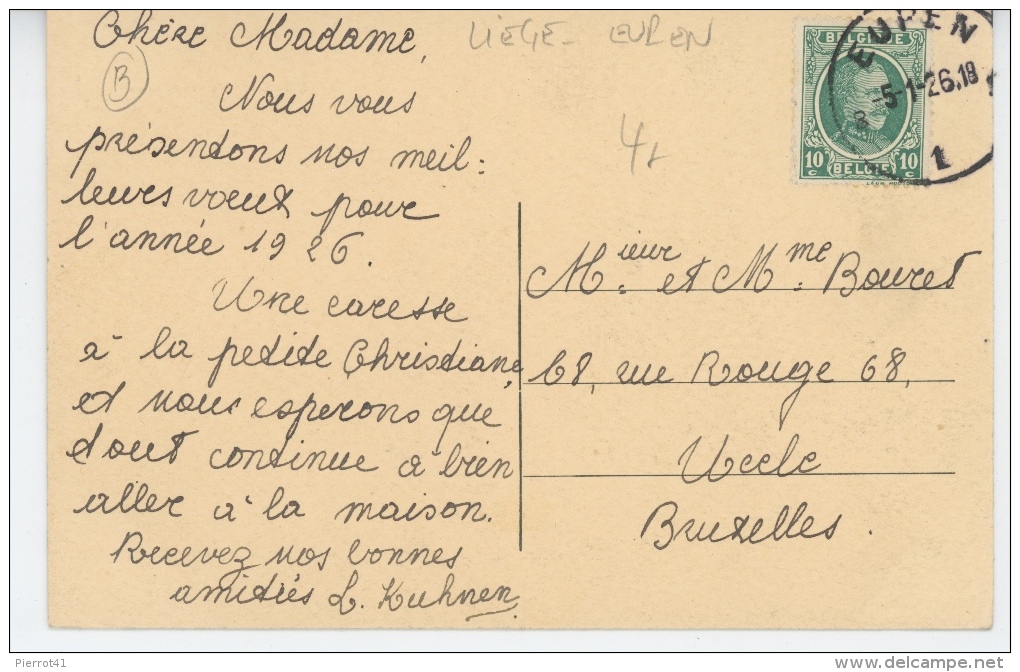 Chère Madame,
LIÈGE - EUPEN
B
Nous vous
présentons nos meil:
leurs vœux pour
l'année 1926.
Une caresse
à la petite Christiane
et nous esperons que
tout continue à bien
aller à la maison.
Recevez nos bonnes
amitiés L. Kuhnen
BELGIQUE
10 c 10 c
BELGIE
EUPEN
-5-1-26.18
1
Mieur et Mme Bouret
68, rue Rouge 68,
Uccle
Bruxelles.
Pierrot41
www.delcampe.net